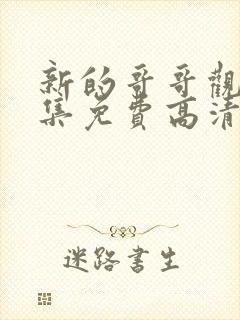 新的哥哥觀
集免費高清
迷路書生